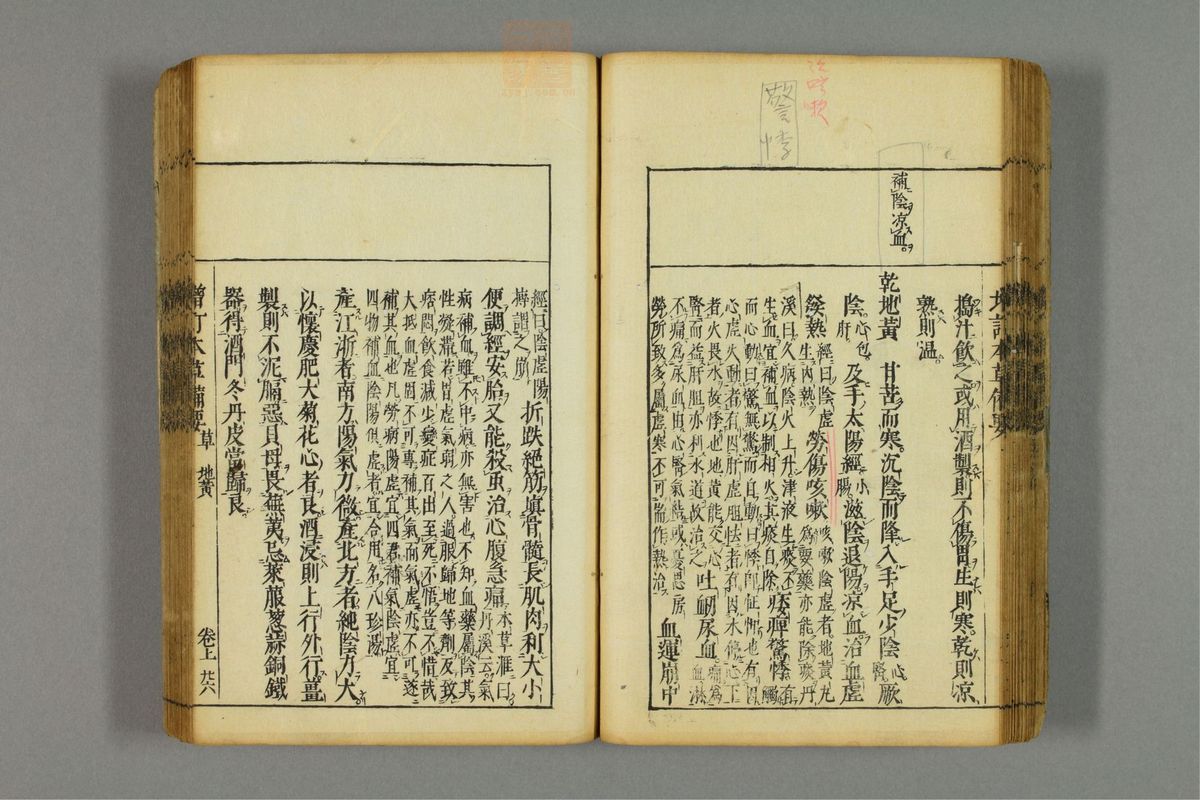 警悸
補陰涼血
搗汁飲之或用酒製則不傷胃生則寒乾則涼
熟則温
乾地黃 甘苦而寒沉陰而降入手足少陰心腎厥
陰心包肝及手太陽經小腸滋陰退陽涼血治血虛
發熱經曰陰虛生內熱勞傷咳嗽咳嗽陰虛者地黃丸為要藥亦能除痰丹
溪曰久病陰火上升津液生痰不生血宜補血以制相火其痰自除痿痺驚悸有觸
而心動曰驚無驚而自動曰悸即怔忡也有因心虛火動者有因肝虛膽怯者有因水停心下
者火畏水故悸也地黃能交心腎而益肝膽亦利水道故治之吐衄尿血血淋痛為
不痛為尿血由心腎氣結或憂思房勞所致多屬虛寒不可耑作熱治血運崩中
經曰陰虛陽搏謂之崩折跌絕筋填骨髓長肌肉利大小
便調經安胎又能殺虫治心腹急痛本草滙曰丹溪云氣
病補血雖不中病亦無害也不知血藥屬陰其性凝滯若胃虛氣弱之人過服歸地等劑反致
痞悶飲食減少變症百出至死不悟豈不惜哉大抵血虛固不可專補其氣而氣虛亦不可遂
補其血也凡勞病陽虛宜四君補氣陰虛宜四物補血陰陽俱虛者宜合用名八珍湯
產江浙者南方陽氣力微產北方者純陰力大
以懷慶肥大菊花心者良酒浸則上行外行薑
製則不泥膈惡貝母畏蕪荑忌萊菔葱蒜銅鐵
器得酒門冬丹皮當歸良
增訂本草備要 草 地黃 卷上 廿六